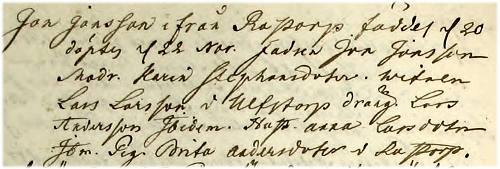 Jon Jonsson ifrån Rastorp föddes d 20
döptes d 22 Nov. fadren Jon Jonsson
Modr. Karin Stephansdoter. witnen
Lars Larsson i Ulfstorp dräng. Lars
Andersson Ibidem. Hust. anna Larsdotr
Ibm. Pig. Brita andersdoter i Rastorp.